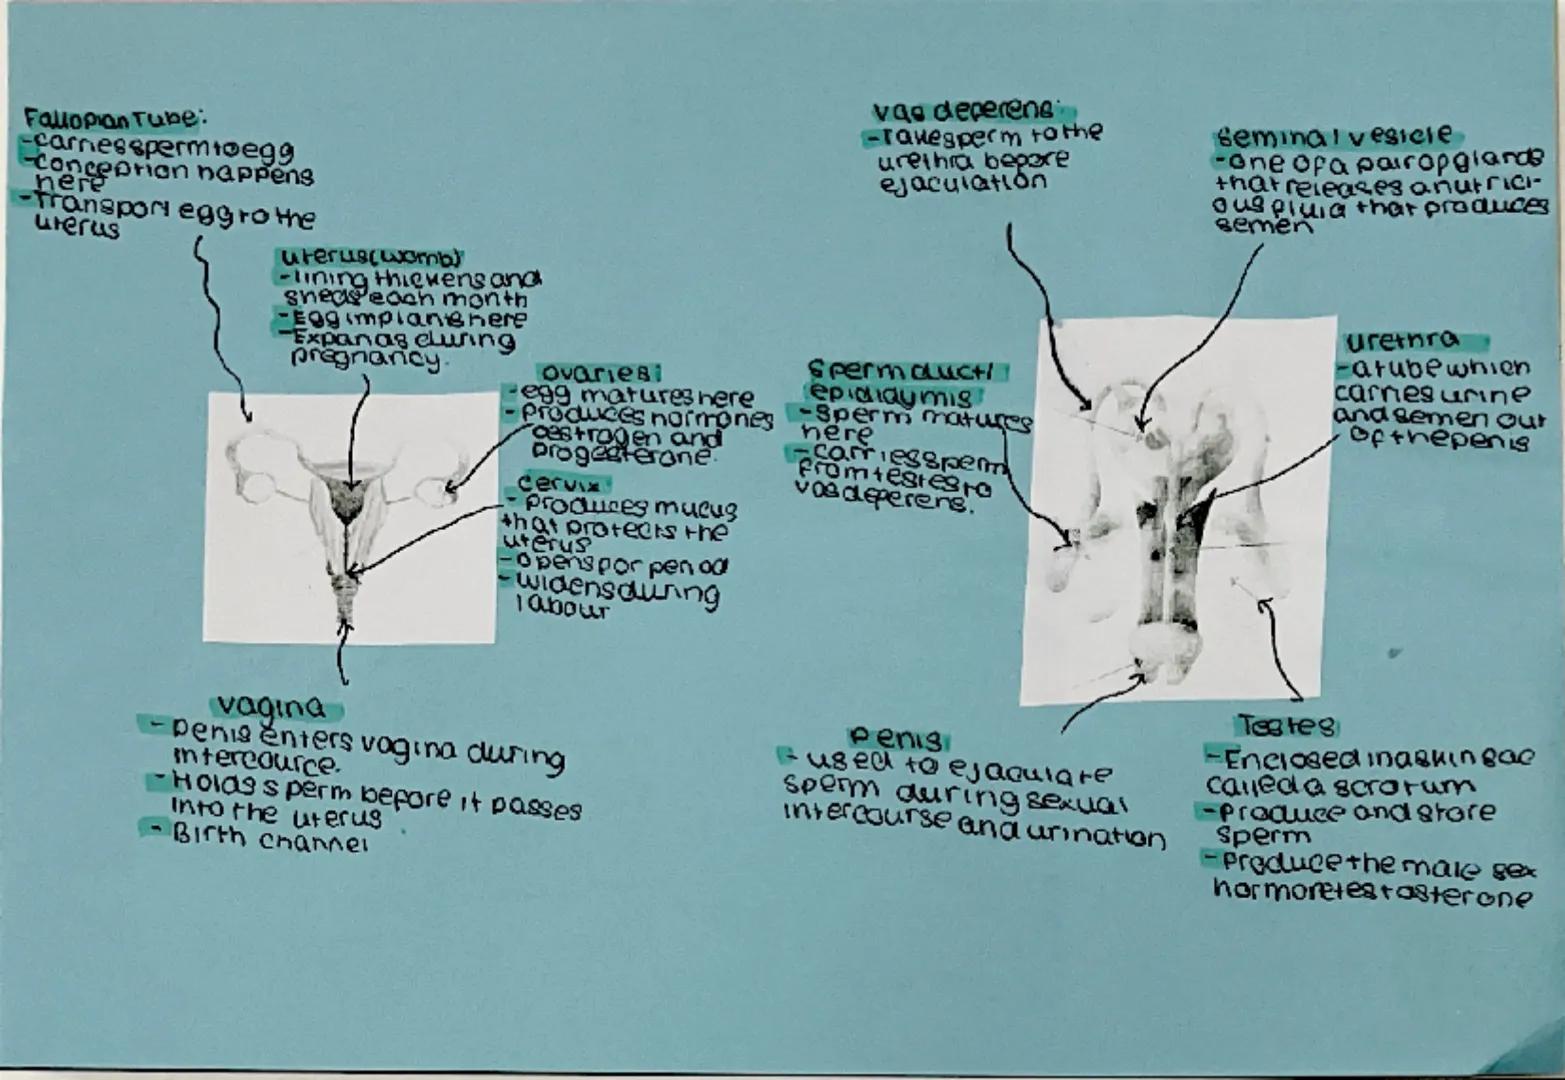 Fallopian Tube:
-carries sperm to egg
-conception happens
here
-Transport egg to the
uterus
uterus (womb)
-lining thickens and
sheds each month
-Egg implants here
-Expands during
pregnancy.
ovaries:
-egg matures here
-produces hormones
oestrogen and
progesterone.
cervix:
-produces mucus
that protects the
uterus
-opens for period
-widens during
labour
vagina
-Penis enters vagina during
intercourse.
-Holds sperm before it passes
into the uterus
-Birth channel
vas deferens:
-Take sperm to the
urethra before
ejaculation
seminal vesicle
-one of a pair of glands
that releases a nutrici-
ous fluid that produces
semen
urethra
-a tube which
carries urine
and semen out
of the penis
Sperm duct/
epididymis
-sperm matures
here
-carries sperm
from testes to
vas deferens.
Penis
-used to ejaculate
sperm during sexual
intercourse and urination
Testes
-Enclosed in a skin sac
called a scrotum
-produce and store
sperm
-produce the male sex
hormone testosterone